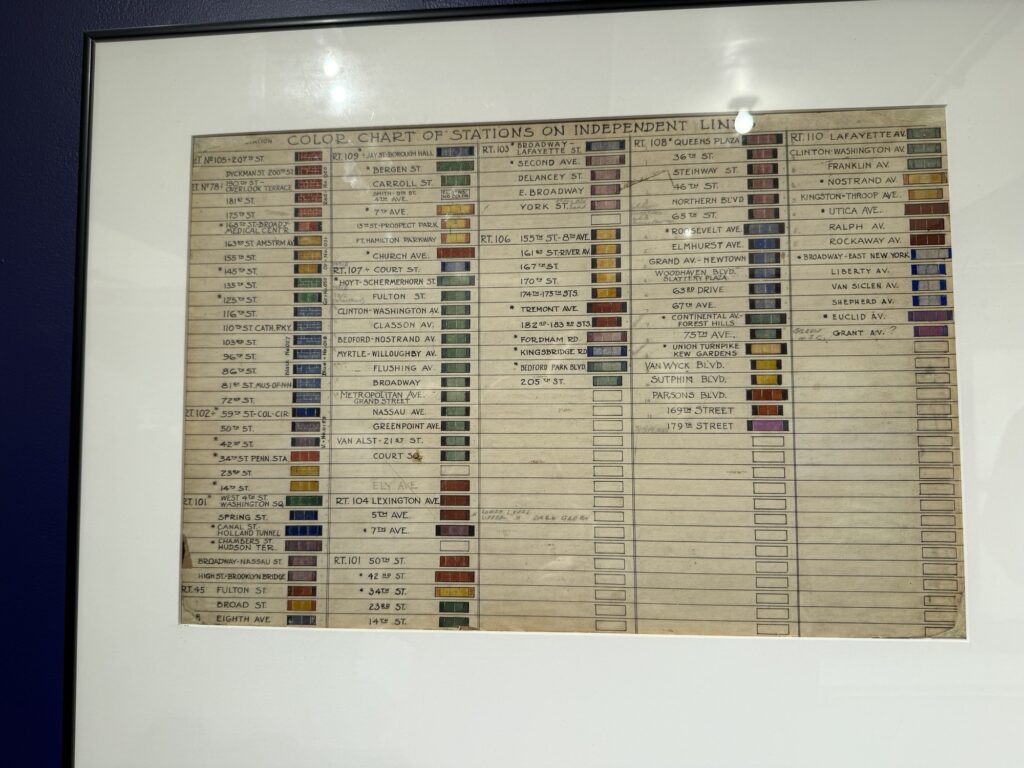 STATION
COLOR CHART OF STATIONS ON INDEPENDENT LINE
RT. Nº105 - 207TH ST.
DYCKMAN ST. 200TH ST.
RT. Nº78 190TH ST-
OVERLOOK TERRACE
181ST ST.
175TH ST.
* 168TH ST-BROADY
MEDICAL CENTR
163RD ST. AMSTRM AV
155TH ST.
* 145TH ST.
135TH ST.
* 125TH ST.
116TH ST.
110TH ST. CATH. PKY.
103RD ST.
96TH ST.
86TH ST.
81ST ST. MUS OF NH
72ND ST.
RT.102 * 59TH ST-COL-CIR.
50TH ST.
* 42ND ST.
* 34TH ST. PENN. STA.
23RD ST.
* 14TH ST.
RT.101 * WEST 4TH ST.
WASHINGTON SQ.
SPRING ST.
* CANAL ST.-
HOLLAND TUNNEL
* CHAMBERS ST.
HUDSON TER.
BROADWAY-NASSAU ST.
HIGH ST.-BROOKLYN BRIDGE
RT.45 FULTON ST.
BROAD ST.
EIGHTH AVE
RT.109 * JAY ST-BOROUGH HALL
* BERGEN ST.
CARROLL ST.
SMITH-9TH ST.
4TH AVE.
* 7TH AVE
15TH ST-PROSPECT PARK
FT. HAMILTON PARKWAY
* CHURCH AVE.
RT.107 - COURT ST.
* HOYT-SCHERMERHORN ST.
FULTON ST.
CLINTON-WASHINGTON AV.
CLASSON AV.
BEDFORD-NOSTRAND AV.
MYRTLE-WILLOUGHBY AV.
FLUSHING AV.
BROADWAY
METROPOLITAN AVE.
GRAND STREET
NASSAU AVE.
GREENPOINT AVE.
VAN ALST-21ST ST.
COURT SQ.
ELY AVE.
RT. 104 LEXINGTON AVE.
5TH AVE.
* 7TH AVE.
RT.101 50TH ST.
* 42ND ST.
* 34TH ST.
23RD ST.
14TH ST.
RT.103 * BROADWAY-
LAFAYETTE ST.
* SECOND AVE.
DELANCEY ST.
E. BROADWAY
YORK ST.
RT.106 155TH ST-8TH AVE
161ST ST-RIVER AV.
167TH ST.
170TH ST.
174TH-175TH STS.
* TREMONT AVE.
182ND-183RD STS.
* FORDHAM RD.
* KINGSBRIDGE RD
* BEDFORD PARK BLVD.
205TH ST.
LOWER LEVEL
UPPER " DARK GREEN
RT. 108 * QUEENS PLAZA
36TH ST.
STEINWAY ST.
46TH ST.
NORTHERN BLVD
65TH ST.
* ROOSEVELT AVE.
ELMHURST AVE.
GRAND AV.-NEWTOWN
WOODHAVEN BLVD.
SLATTERY PLAZA
63RD DRIVE
67TH AVE.
* CONTINENTAL AV-
FOREST HILLS
75TH AVE.
* UNION TURNPIKE
KEW GARDENS
VAN WYCK BLVD.
SUTPHIN BLVD.
PARSONS BLVD.
169TH STREET
179TH STREET
RT.110 LAFAYETTE AV.
CLINTON-WASHINGTON AV.
FRANKLIN AV.
* NOSTRAND AV.
KINGSTON-THROOP AVE.
* UTICA AVE.
RALPH AV.
ROCKAWAY AV.
* BROADWAY-EAST NEW YORK
LIBERTY AV.
VAN SICLEN AV.
SHEPHERD AV.
* EUCLID AV.
GRANT AV. ?